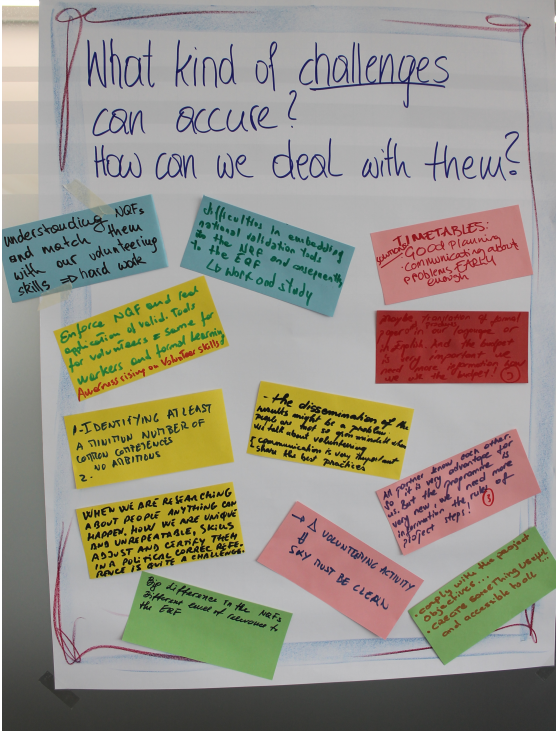 What kind of challenges
can accure?
How can we deal with them?
understanding NQFs
and match them
with our volunteering
skills => hard work
difficulties in embedding
national validation tools
to the NQF and consequently
to the EQF
↳ Work and study
TIMETABLES:
GOOD planning
communicating about
problems EARLY
enough
Enforce NQF and real
application of valid. Tools
for volunteers = same for
workers and formal learning
Awarnessrising on Volunteer skills!
maybe translation of formal
papers in our language or
in English. And the budget
is very important we
need more information how
we use the budget! (3)
1-IDENTIFYING AT LEAST
A MINIMUM NUMBER OF
COMMON COMPETENCES
NO AMBITIOUS
2.
- the dissemination of the
results might be a problem
people are not so open minded when
we talk about volunteering
communication is very important
share the best practices
All partner know each other.
So it is very advantage for
us. But the programme is
very new, we need more
information the rules of
project steps!
WHEN WE ARE RESEARCHING
ABOUT PEOPLE ANYTHING CAN
HAPPEN. HOW WE ARE UNIQUE
AND UNREPEATABLE, SKILLS
ADJUST AND CERTIFY THEM
IN A POLITICAL CORREC REFE-
RENCE IS QUITE A CHALLENGE.
→ Δ VOLUNTEERING ACTIVITY
⇓
SKY MUST BE CLEAR
Big difference in the NQFs
different level of relevance to
the EQF
- comply with the project
objectives...
- create something useful
and accessible tool!...